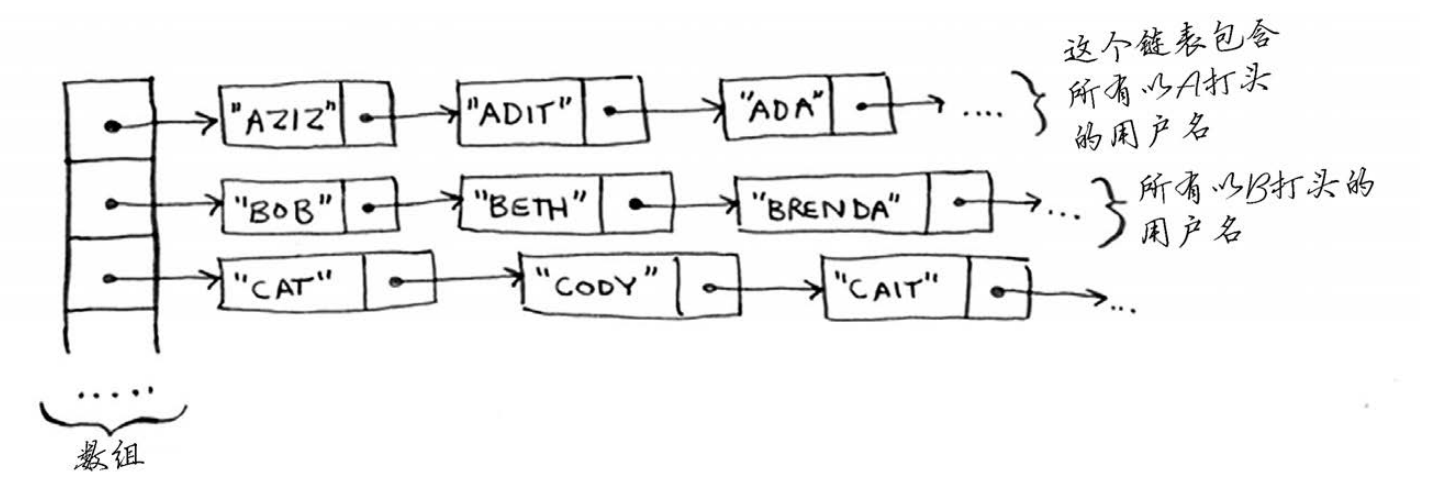 "AZIZ" "ADIT" "ADA" ....
这个链表包含
所有以A打头
的用户名
"BOB" "BETH" "BRENDA" ...
所有以B打头的
用户名
"CAT" "CODY" "CAIT" ...
.....
数组